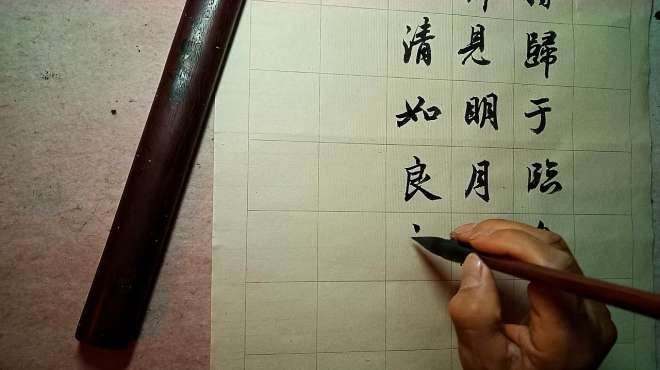 歸于臨
見明月
清如良